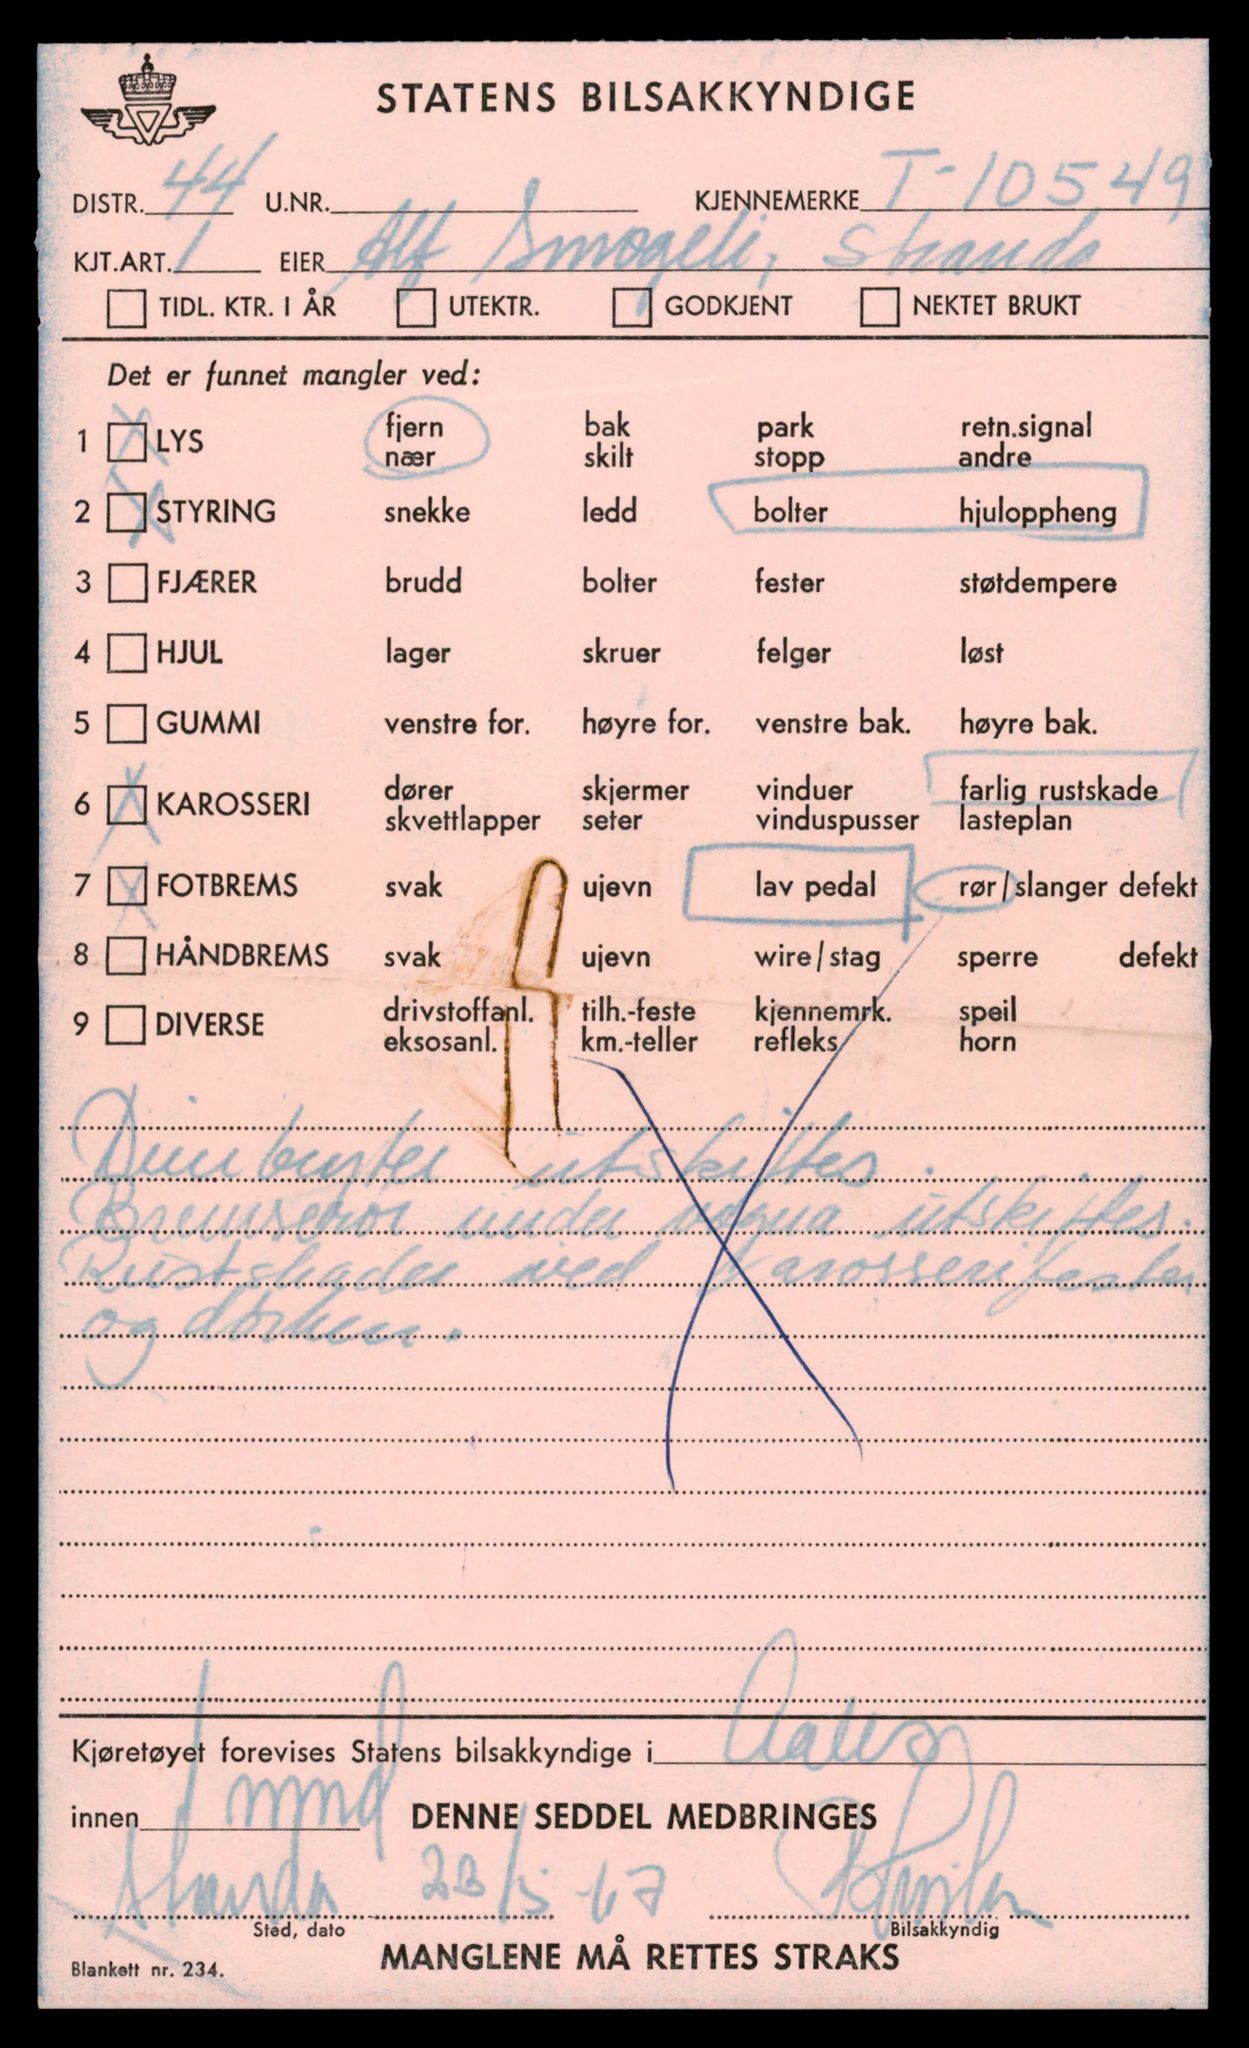 STATENS BILSAKKYNDIGE
DISTR. 44 U.NR. KJENNEMERKE T-10549
KJT.ART. 1 EIER Alf Smogeli, Stranda
TIDL. KTR. I ÅR UTEKTR. GODKJENT NEKTET BRUKT
Det er funnet mangler ved:
1 LYS fjern bak park retn.signal
nær skilt stopp andre
2 STYRING snekke ledd bolter hjuloppheng
3 FJÆRER brudd bolter fester støtdempere
4 HJUL lager skruer felger løst
5 GUMMI venstre for. høyre for. venstre bak. høyre bak.
6 KAROSSERI dører skjermer vinduer farlig rustskade
skvettlapper seter vinduspusser lasteplan
7 FOTBREMS svak ujevn lav pedal rør/slanger defekt
8 HÅNDBREMS svak ujevn wire/stag sperre defekt
9 DIVERSE drivstoffanl. tilh.-feste kjennemrk. speil
eksosanl. km.-teller refleks horn
utskiftes.
Bremserør under vogna utskiftes.
Rustskader ved karosserifester
og dørken.
Kjøretøyet forevises Statens bilsakkyndige i Aalesr
innen 1 mnd DENNE SEDDEL MEDBRINGES
Stranda 23/5-67
Sted, dato Bilsakkyndig
MANGLENE MÅ RETTES STRAKS
Blankett nr. 234.